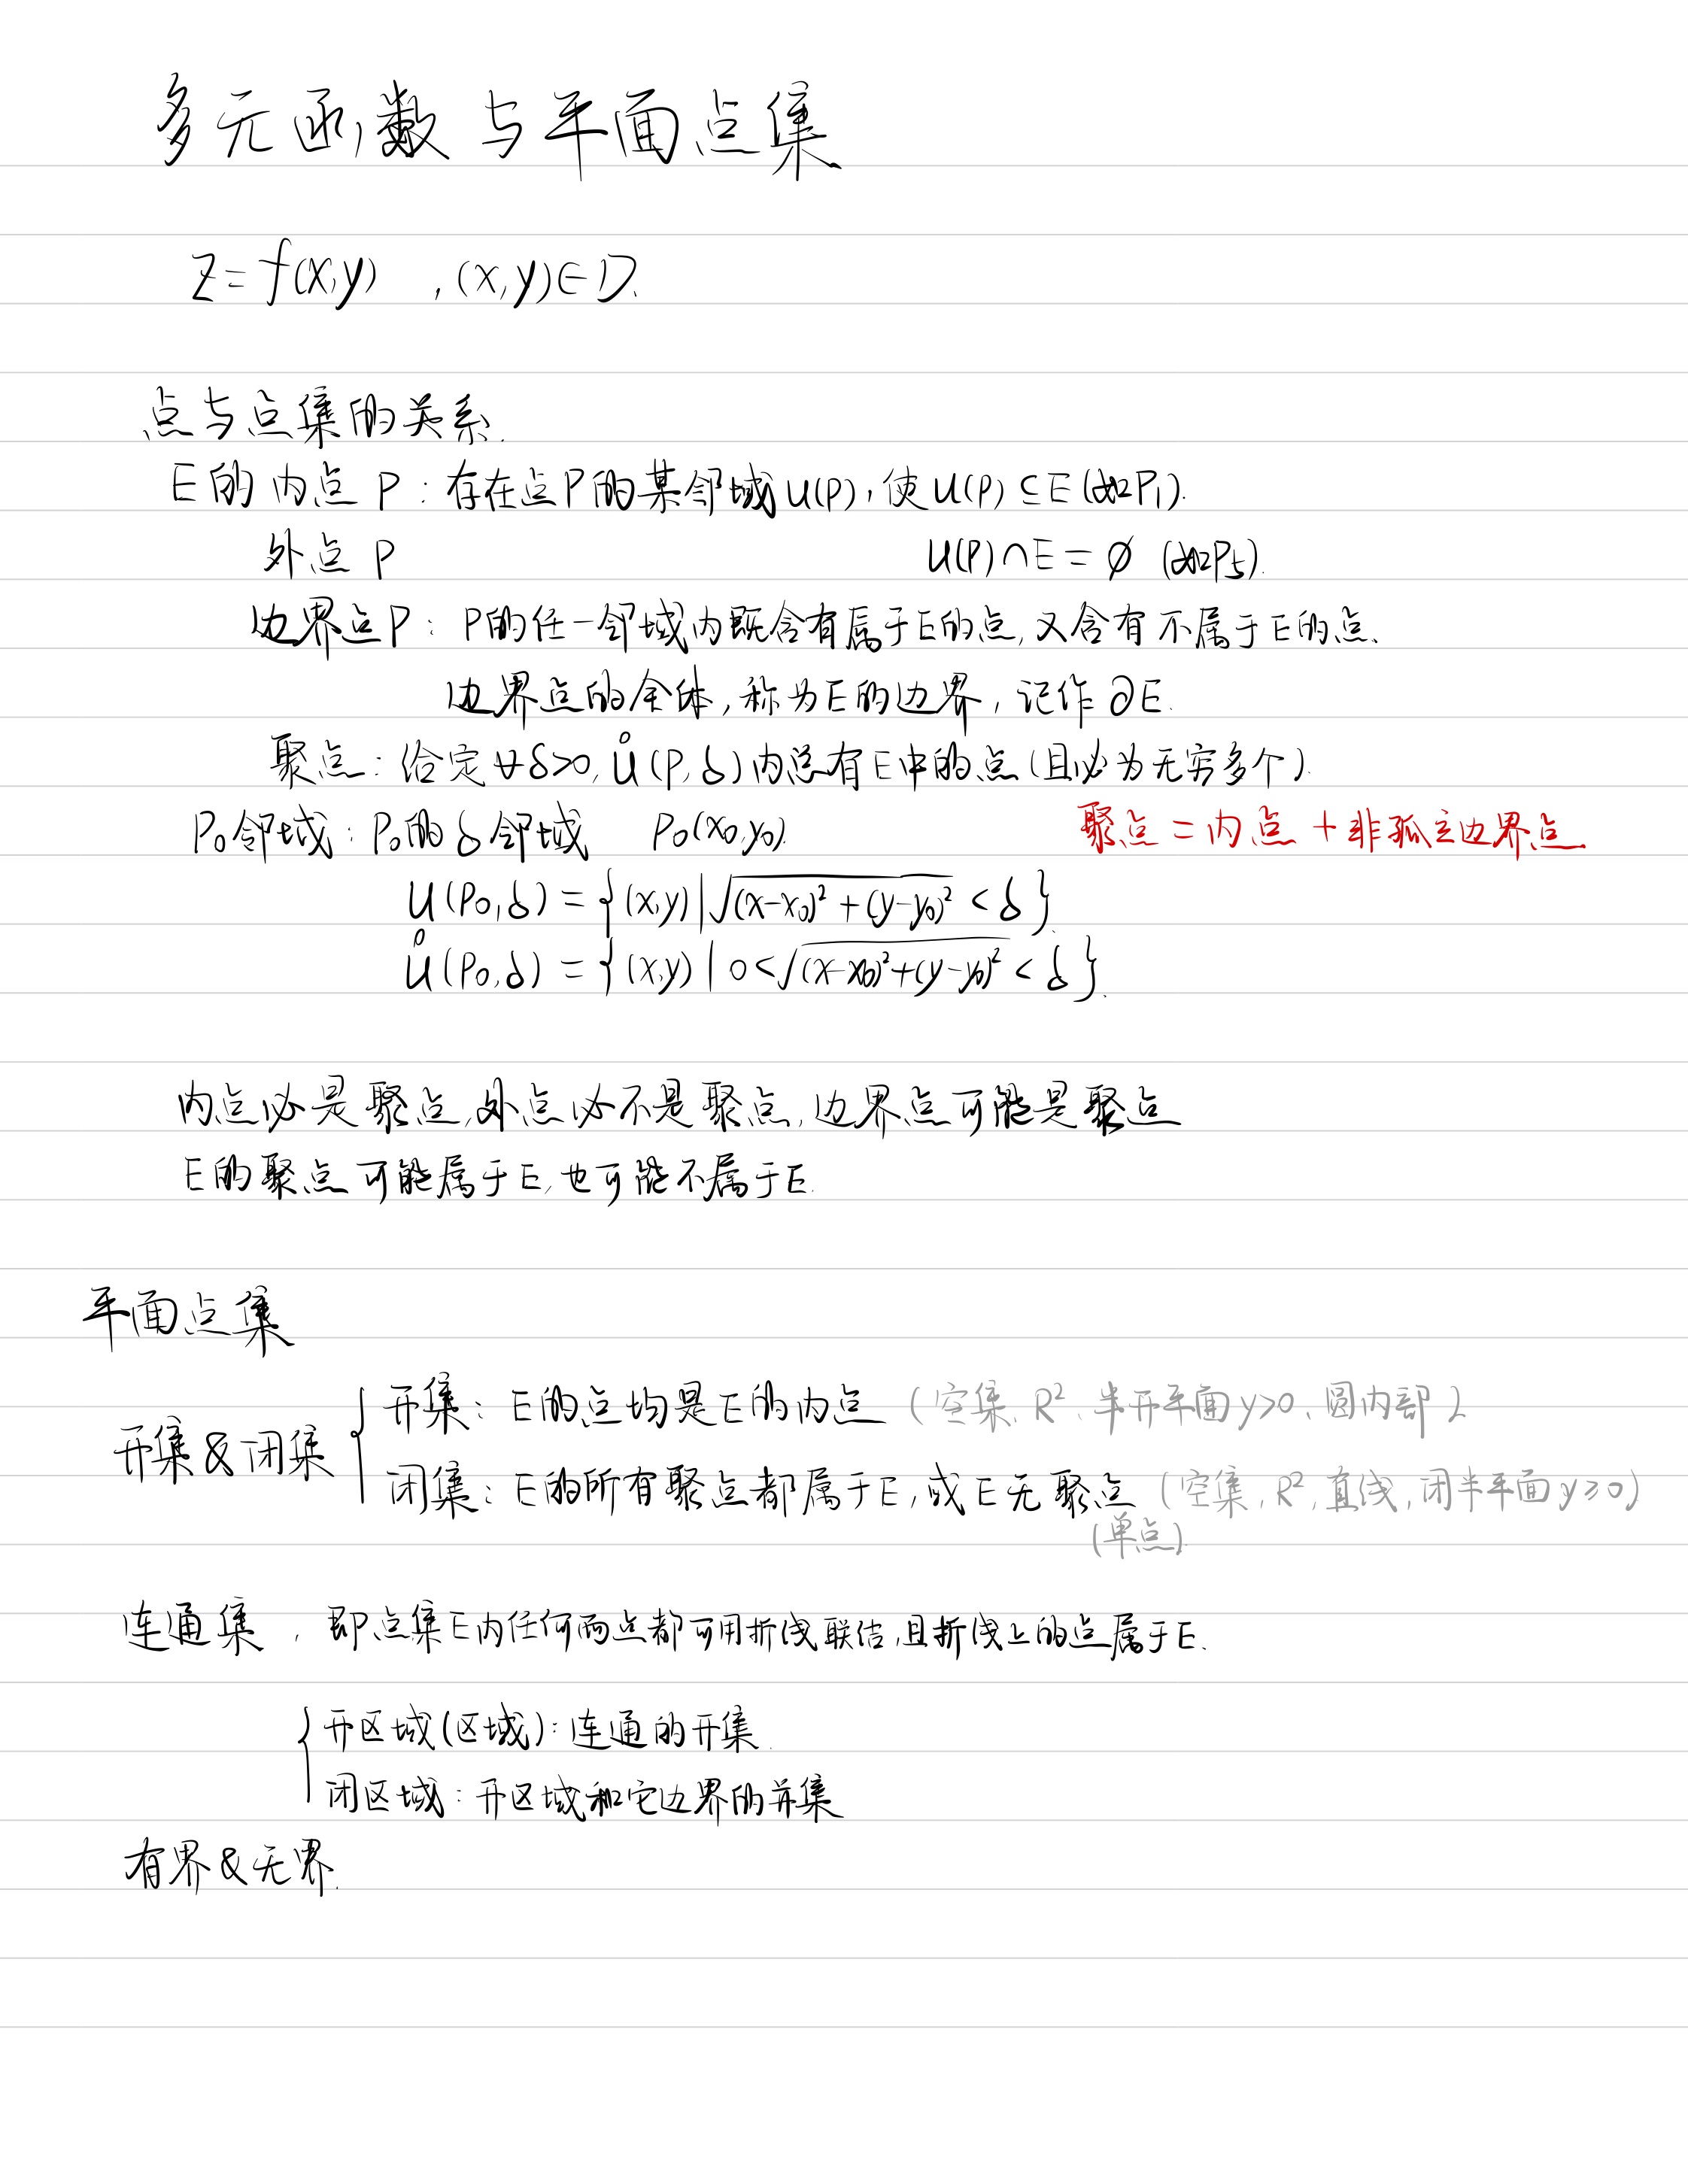 多元函数与平面点集
z=f(x,y) ,(x,y)∈D.
点与点集的关系.
E的内点P:存在点P的某邻域U(P),使U(P)⊆E(如P₁).
外点P U(P)∩E=∅ (如P₅).
边界点P: P的任一邻域内既含有属于E的点,又含有不属于E的点.
边界点的全体,称为E的边界,记作∂E.
聚点:给定∀δ>0,Ů(P,δ)内总有E中的点(且必为无穷多个).
P₀邻域:P₀的δ邻域 P₀(x₀,y₀). 聚点=内点+非孤立边界点
U(P₀,δ)={(x,y)|√((x-x₀)²+(y-y₀)²)<δ}.
Ů(P₀,δ)={(x,y)|0<√((x-x₀)²+(y-y₀)²)<δ}.
内点必是聚点,外点必不是聚点,边界点可能是聚点
E的聚点可能属于E,也可能不属于E.
平面点集
开集&闭集
开集:E的点均是E的内点(空集、R²、半开平面y>0、圆内部)
闭集:E的所有聚点都属于E,或E无聚点(空集,R²,直线,闭半平面y≥0)
(单点)
连通集,即点集E内任何两点都可用折线联结,且折线上的点属于E.
开区域(区域):连通的开集.
闭区域:开区域和它边界的并集
有界&无界.